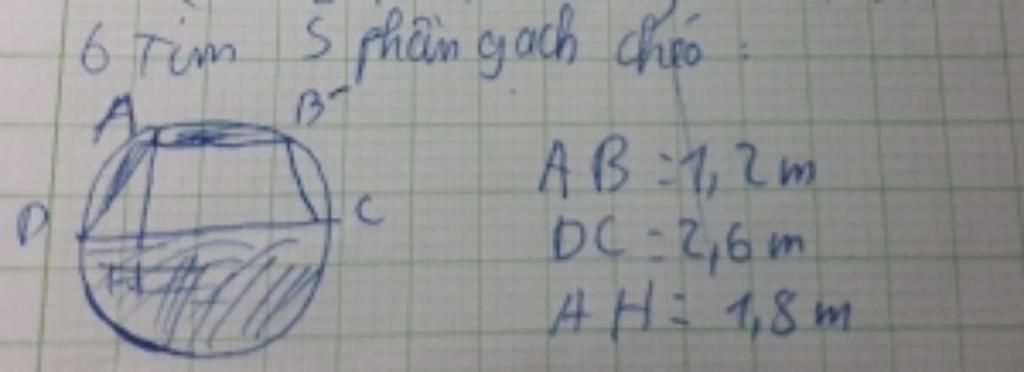 6 Tìm S phần gạch chéo:
A B
D C
H
AB = 1,2m
DC = 2,6m
AH = 1,8m